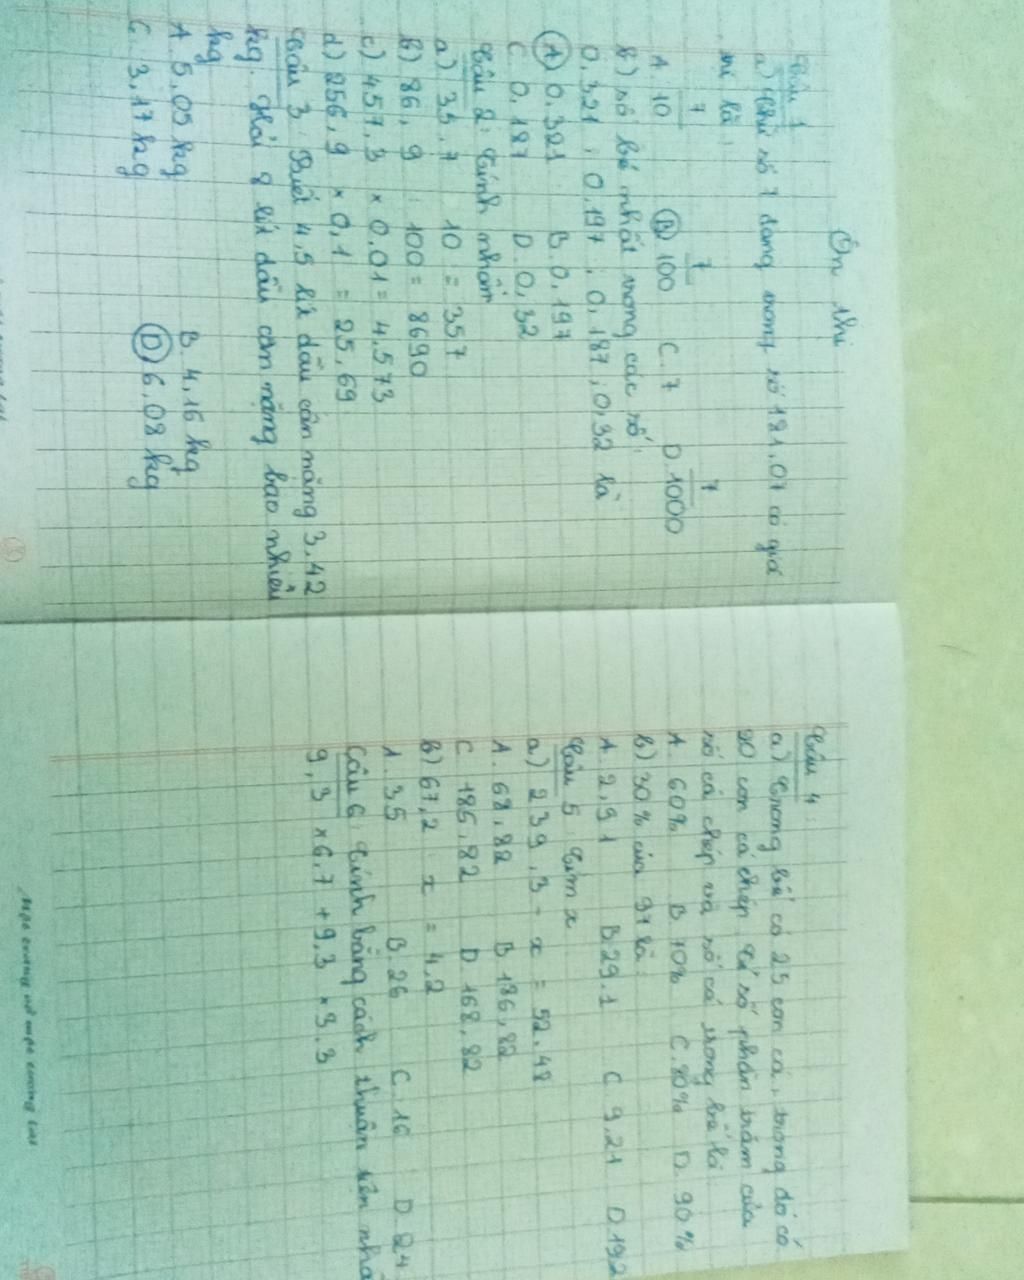 Ôn thi
Câu 1
a) Chữ số 7 đang trong số 181,07 có giá
trị là:
A. 7/10 B. 7/100 C. 7 D. 7/1000
b) số bé nhất trong các số:
0,321 ; 0,197 ; 0,187 ; 0,32 là
A) 0,321 B. 0,197
C. 0,187 D. 0,32
Câu 2: Tính nhẩm
a) 35,7 10 = 357
b) 86,9 : 100 = 8690
c) 457,3 × 0,01 = 4,573
d) 256,9 × 0,1 = 25,69
Câu 3: Biết 4,5 lít dầu cân nặng 3,42
kg. Hỏi 8 lít dầu cân nặng bao nhiêu
kg
A. 5,05 kg B. 4,16 kg
C. 3,17 kg D) 6,08 kg
Câu 4:
a) Trong bể có 25 con cá, trong đó có
20 con cá chép. Tỉ số phần trăm của
số cá chép và số cá trong bể là:
A. 60% B 70% C. 80% D. 90%
b) 30% của 97 là:
A. 2,91 B. 29,1 C 9,21 D. 19,2
Câu 5 Tìm x
a) 239,3 - x = 52,48
A. 68,82 B 186,82
C 185,82 D. 168,82
b) 67,2 : x = 4,2
A. 35 B. 26 C. 16 D. 24
Câu 6: Tính bằng cách thuận tiện nhấ
9,3 × 6,7 + 9,3 × 3,3